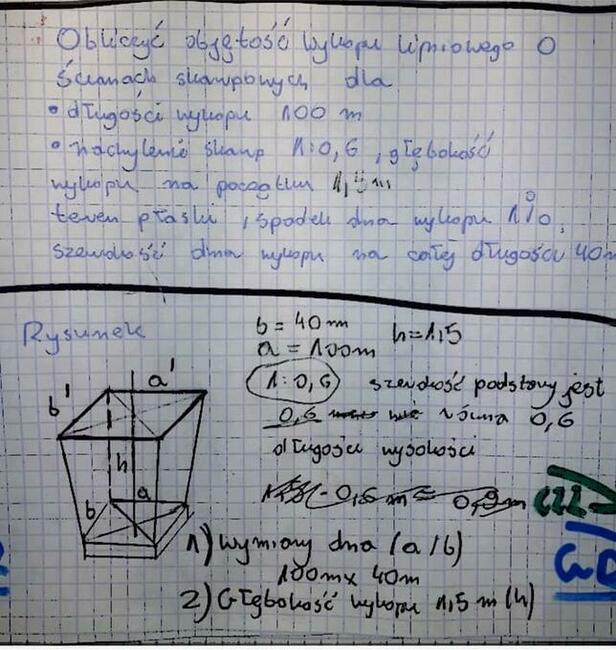 Obliczyć objętość wykopu liniowego o
ścianach skarpowych dla
• długości wykopu 100 m
• nachylenie skarp 1:0,6, głębokość
wykopu na początku 1,5m
teren płaski, spadek dna wykopu 1%,
szerokość dna wykopu na całej długości 40m
Rysunek
b = 40m
a = 100m
h=1,5
1:0,6 szerokość podstawy jest
0,6 równa 0,6
długości wysokości
0,6 m = 0,9m
b' a'
h
b a
1) Wymiary dna (a/b)
100m x 40m
2) Głębokość wykopu 1,5 m (h)